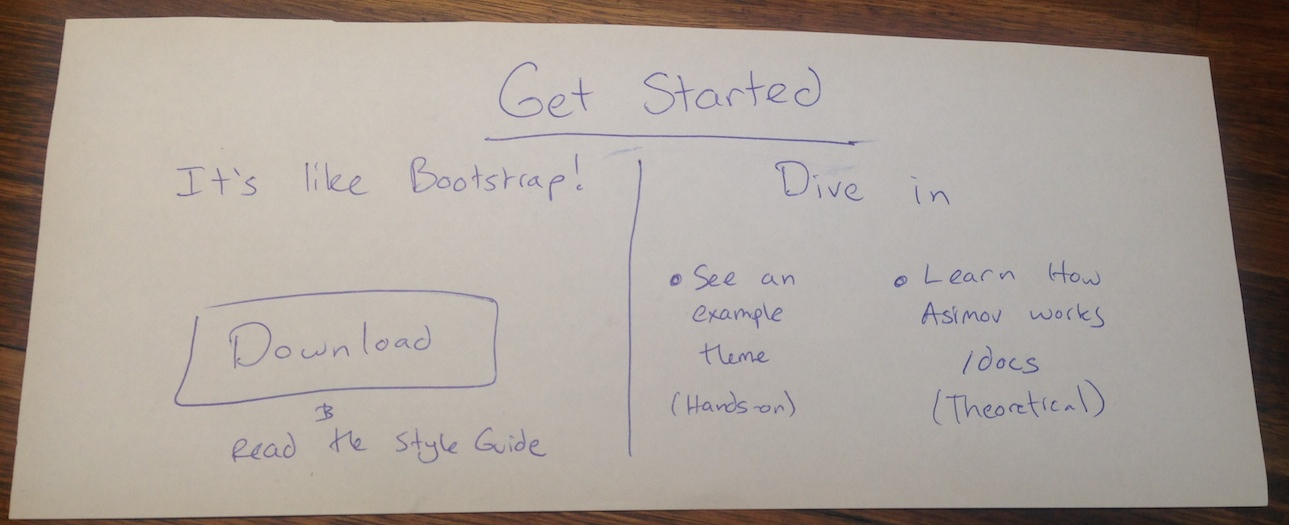 Get Started
It's like Bootstrap!
Download
Read the Style Guide
Dive in
• See an
example
theme
(Hands-on)
• Learn How
Asimov works
/docs
(Theoretical)